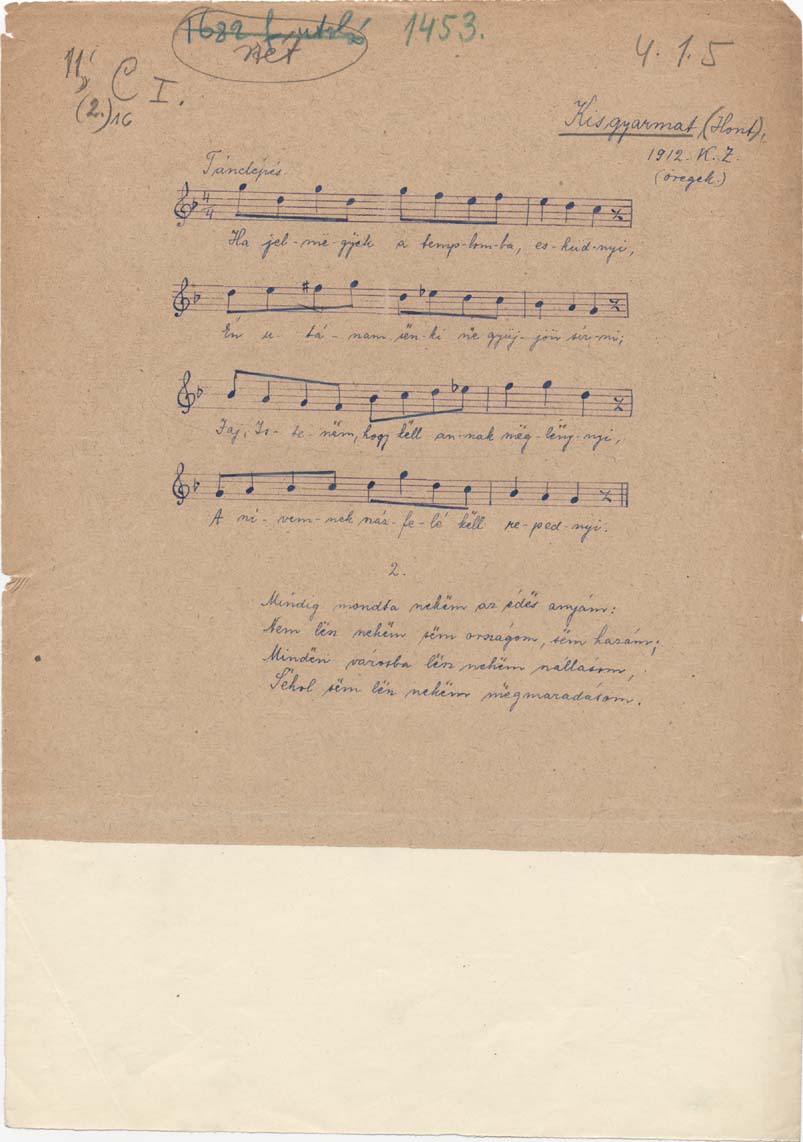 1682 f utolsó
1453.
4.1.5
11
C I.
(2.) 16
Kisgyarmat (Hont),
1912. K. Z.
(öregek.)
Tánclépés
4/4
Ha jel-më-gyëk a temp-lom-ba, es-küd-nyi,
Én u-tá-nam sën-ki në gyüj-jön sír-ni;
Jaj, Is-te-nëm, hogy këll an-nak mëg-lëny-nyi,
A ní-vem-nek -fe-lé këll re-ped-nyi.
2.
Mindig mondta nekëm az édës anyám:
Nem lësz nekëm sëm országom, sëm hazám;
Mindën városba lësz nekëm szállásom,
Sëhol sëm lësz nekëm mëgmaradásom.